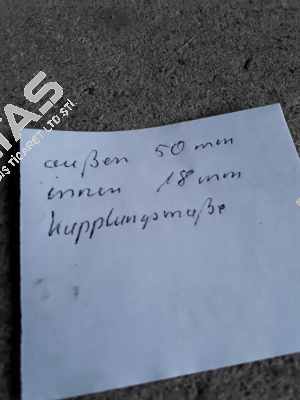 IAS
SIS TİCARET LTD.ŞTİ.
außen 50 mm
innen 18 mm
Kupplungsmaße